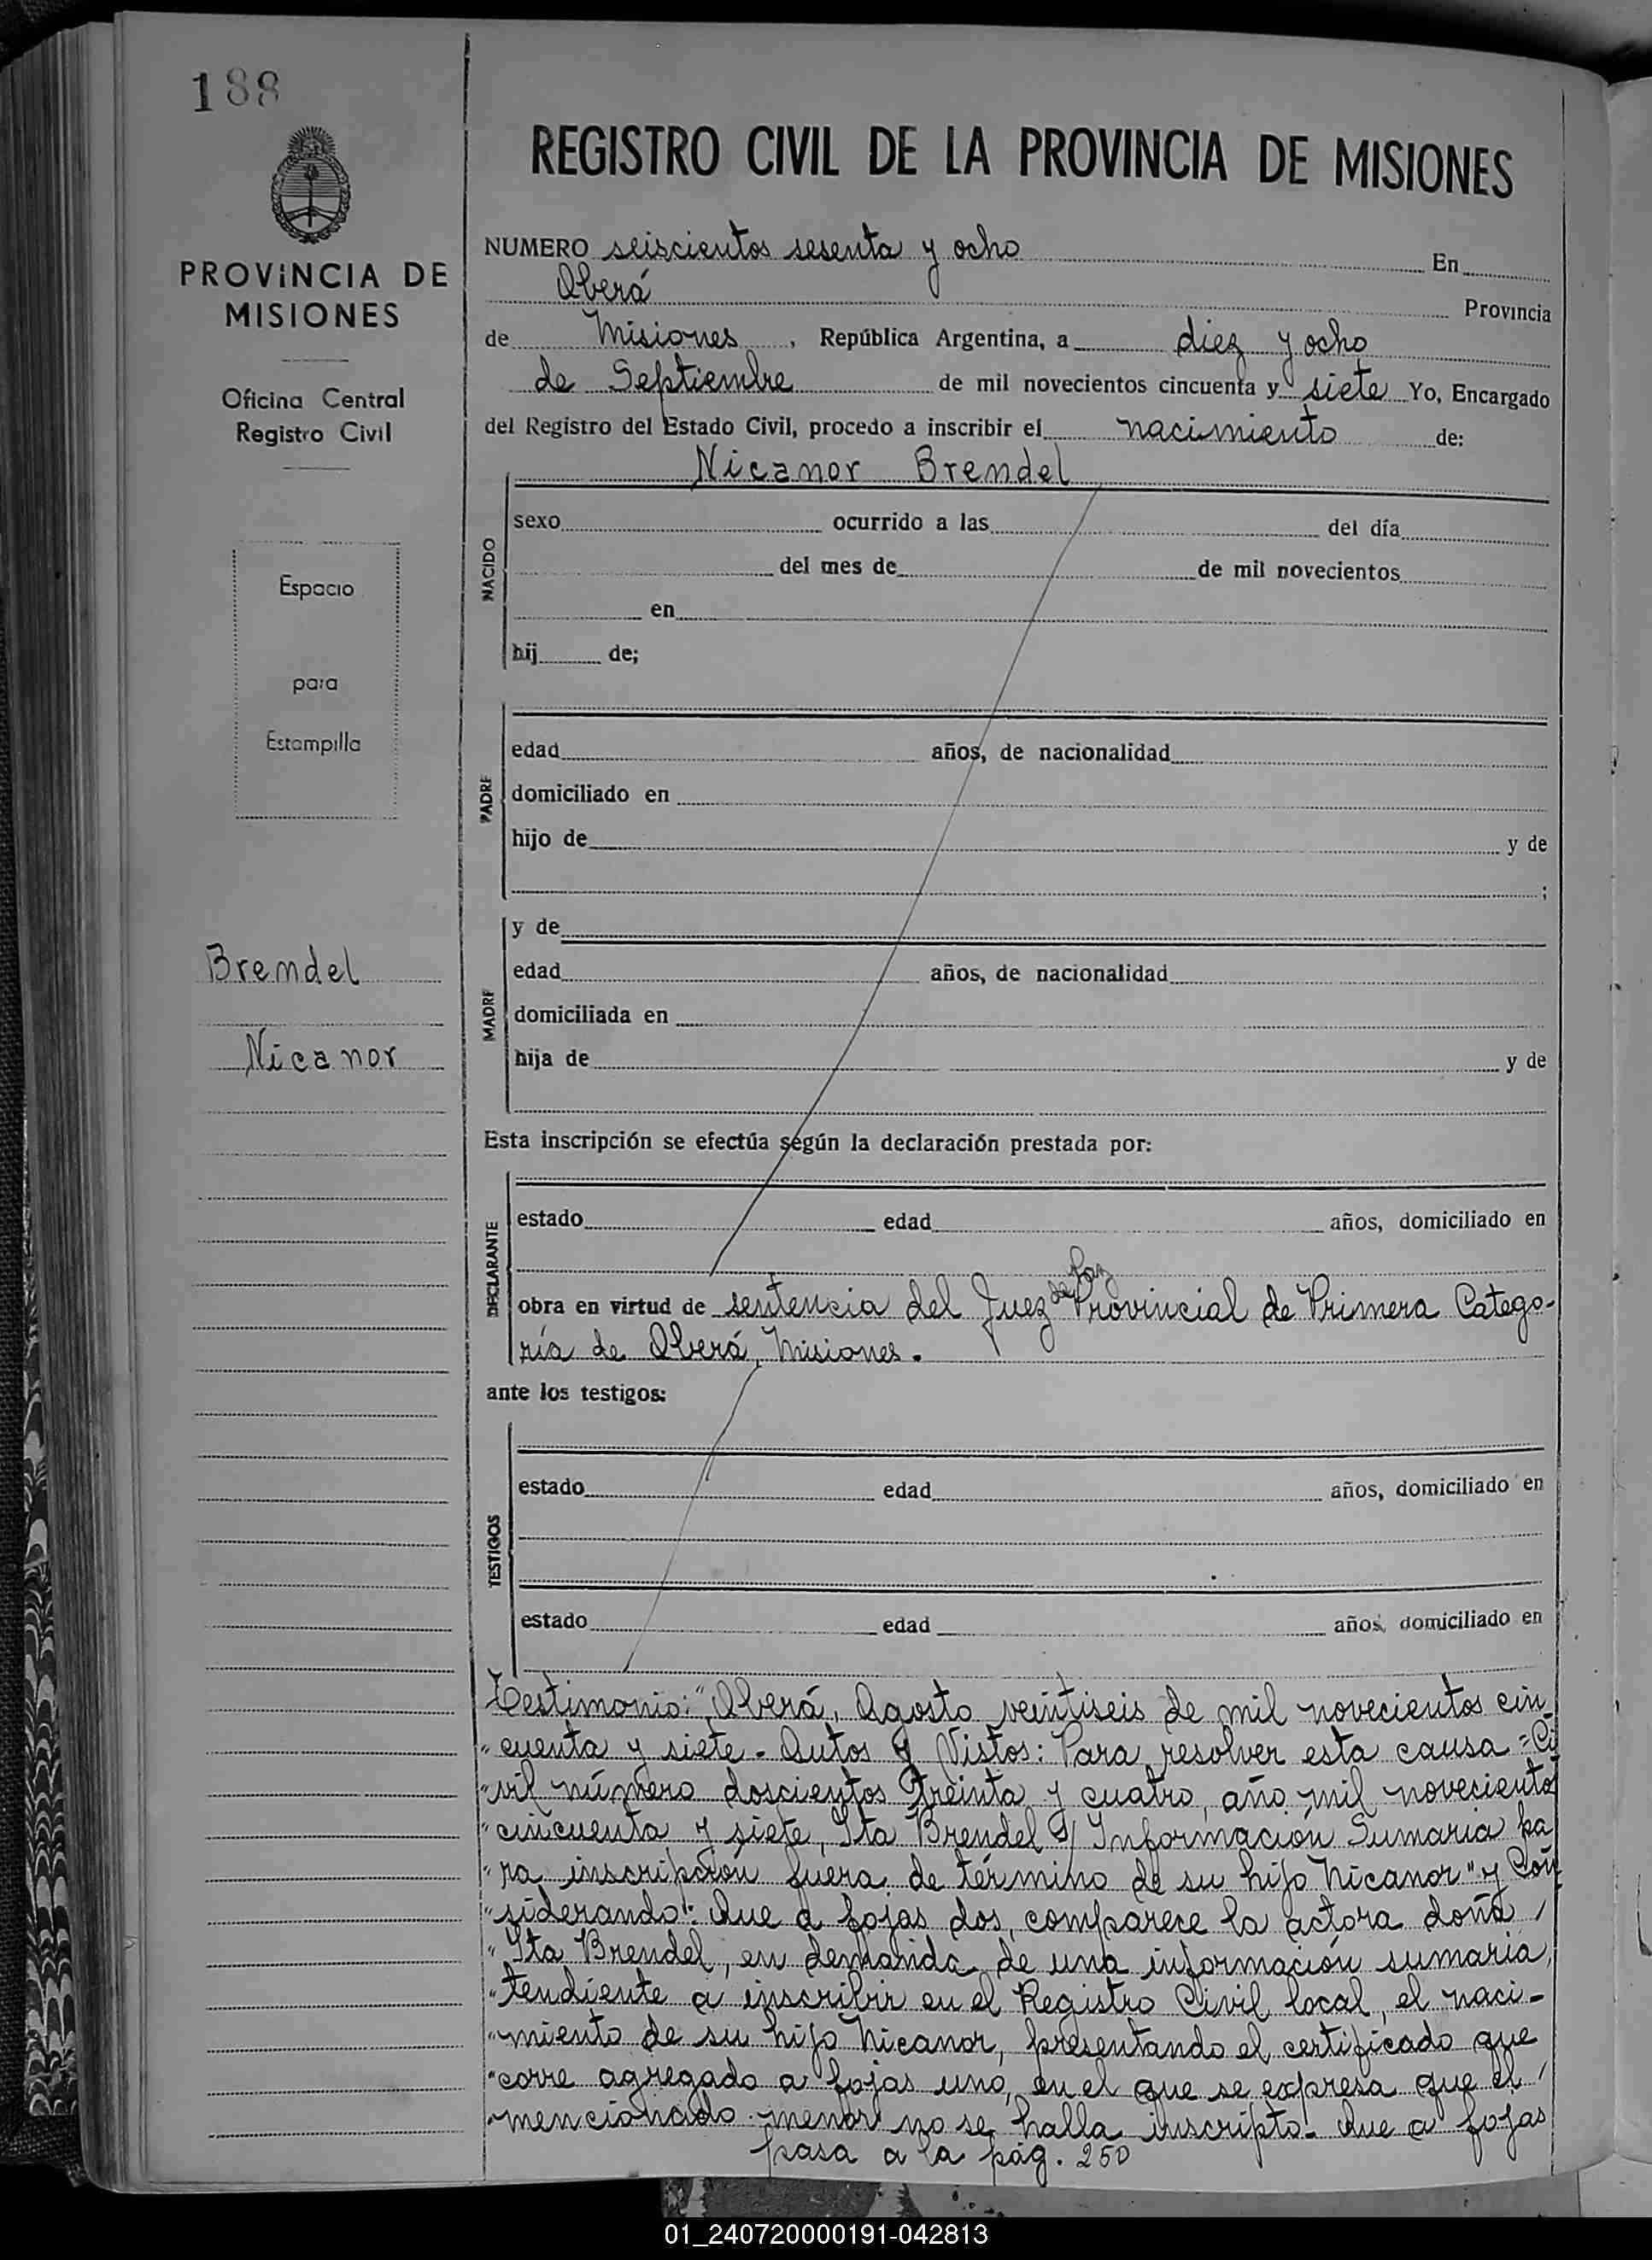 188
PROVINCIA DE
MISIONES
Oficina Central
Registro Civil
Espacio
para
Estampilla
Brendel
Nicanor
REGISTRO CIVIL DE LA PROVINCIA DE MISIONES
NUMERO seiscientos sesenta y ocho En
Oberá Provincia
de Misiones, República Argentina, a diez y ocho
de Septiembre de mil novecientos cincuenta y siete Yo, Encargado
del Registro del Estado Civil, procedo a inscribir el nacimiento de:
Nicanor Brendel
NACIDO
sexo ocurrido a las del día
del mes de de mil novecientos
en
hij de;
PADRE
edad años, de nacionalidad
domiciliado en
hijo de y de
;
MADRE
y de
edad años, de nacionalidad
domiciliada en
hija de y de
Esta inscripción se efectúa según la declaración prestada por:
DECLARANTE
estado edad años, domiciliado en
obra en virtud de sentencia del Juez de Paz Provincial de Primera Catego-
ría de Oberá, Misiones.
ante los testigos:
TESTIGOS
estado edad años, domiciliado en
estado edad años, domiciliado en
Testimonio: "Oberá, Agosto veintiseis de mil novecientos cin
"cuenta y siete - Autos y Vistos: Para resolver esta causa = Ci
"vil número doscientos treinta y cuatro, año mil novecientos
"cincuenta y siete, Ita Brendel s/ Información Sumaria pa
"ra inscripción fuera de término de su hijo Nicanor" y Con
"siderando": Que a fojas dos, comparece la actora doña
"Ita Brendel, en demanda de una información sumaria,
"tendiente a inscribir en el Registro Civil local, el naci-
"miento de su hijo Nicanor, presentando el certificado que
"corre agregado a fojas uno, en el que se expresa que el
"mencionado menor no se halla inscripto. Que a fojas
pasa a la pág. 250
01_240720000191-042813